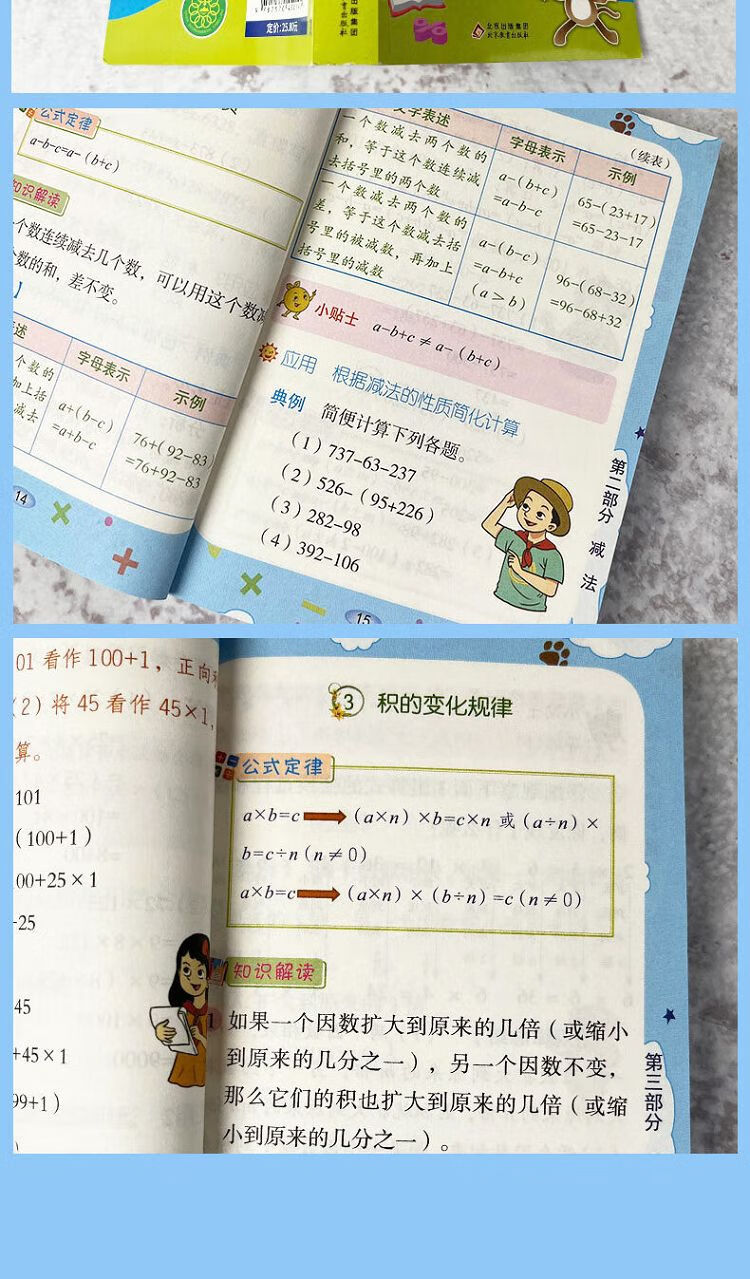 定价:25.80元
出版集团
教育出版社
北京出版集团
北京教育出版社
公式定律
a-b-c=a-(b+c)
知识解读
个数连续减去几个数，可以用这个数减
数的和，差不变。
】
述
字母表示
示例
个数的
加上括
减去
a+(b-c)
=a+b-c
76+(92-83)
=76+92-83
14
(续表)
文字表述
字母表示
示例
一个数减去两个数的
和，等于这个数连续减
去括号里的两个数
a-(b+c)
=a-b-c
65-(23+17)
=65-23-17
一个数减去两个数的
差，等于这个数减去括
号里的被减数，再加上
括号里的减数
a-(b-c)
=a-b+c
(a>b)
96-(68-32)
=96-68+32
小贴士 a-b+c≠a-(b+c)
应用 根据减法的性质简化计算
典例 简便计算下列各题。
(1)737-63-237
(2)526-(95+226)
(3)282-98
(4)392-106
第二部分 减法
15
01看作100+1，正向
(2)将45看作45×1，
算。
101
(100+1)
00+25×1
-25
45
+45×1
99+1)
)
3 积的变化规律
公式定律
a×b=c (a×n)×b=c×n或(a÷n)×
b=c÷n(n≠0)
a×b=c (a×n)×(b÷n)=c(n≠0)
知识解读
1 如果一个因数扩大到原来的几倍(或缩小
到原来的几分之一)，另一个因数不变，
那么它们的积也扩大到原来的几倍(或缩
小到原来的几分之一)。
第三部分